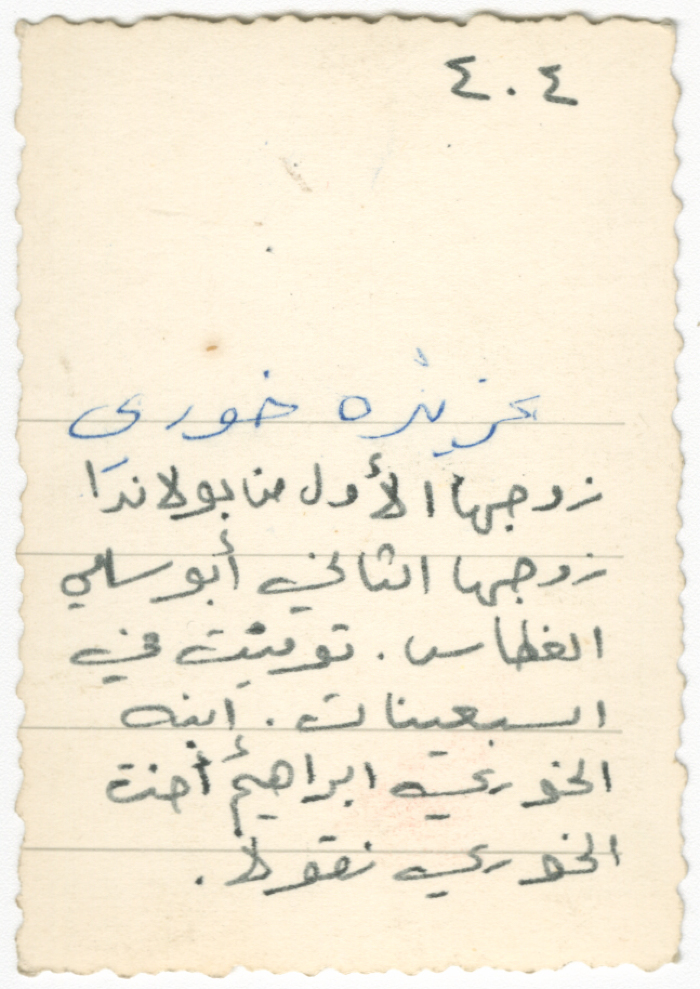 ٤٠٤
عزيزه خوري
زوجها الأول من بولاندا
زوجها الثاني أبو سامي
الغطاس . توفيت في
السبعينات . ابنه
الخوري ابراهيم أخت
الخوري نقولا .